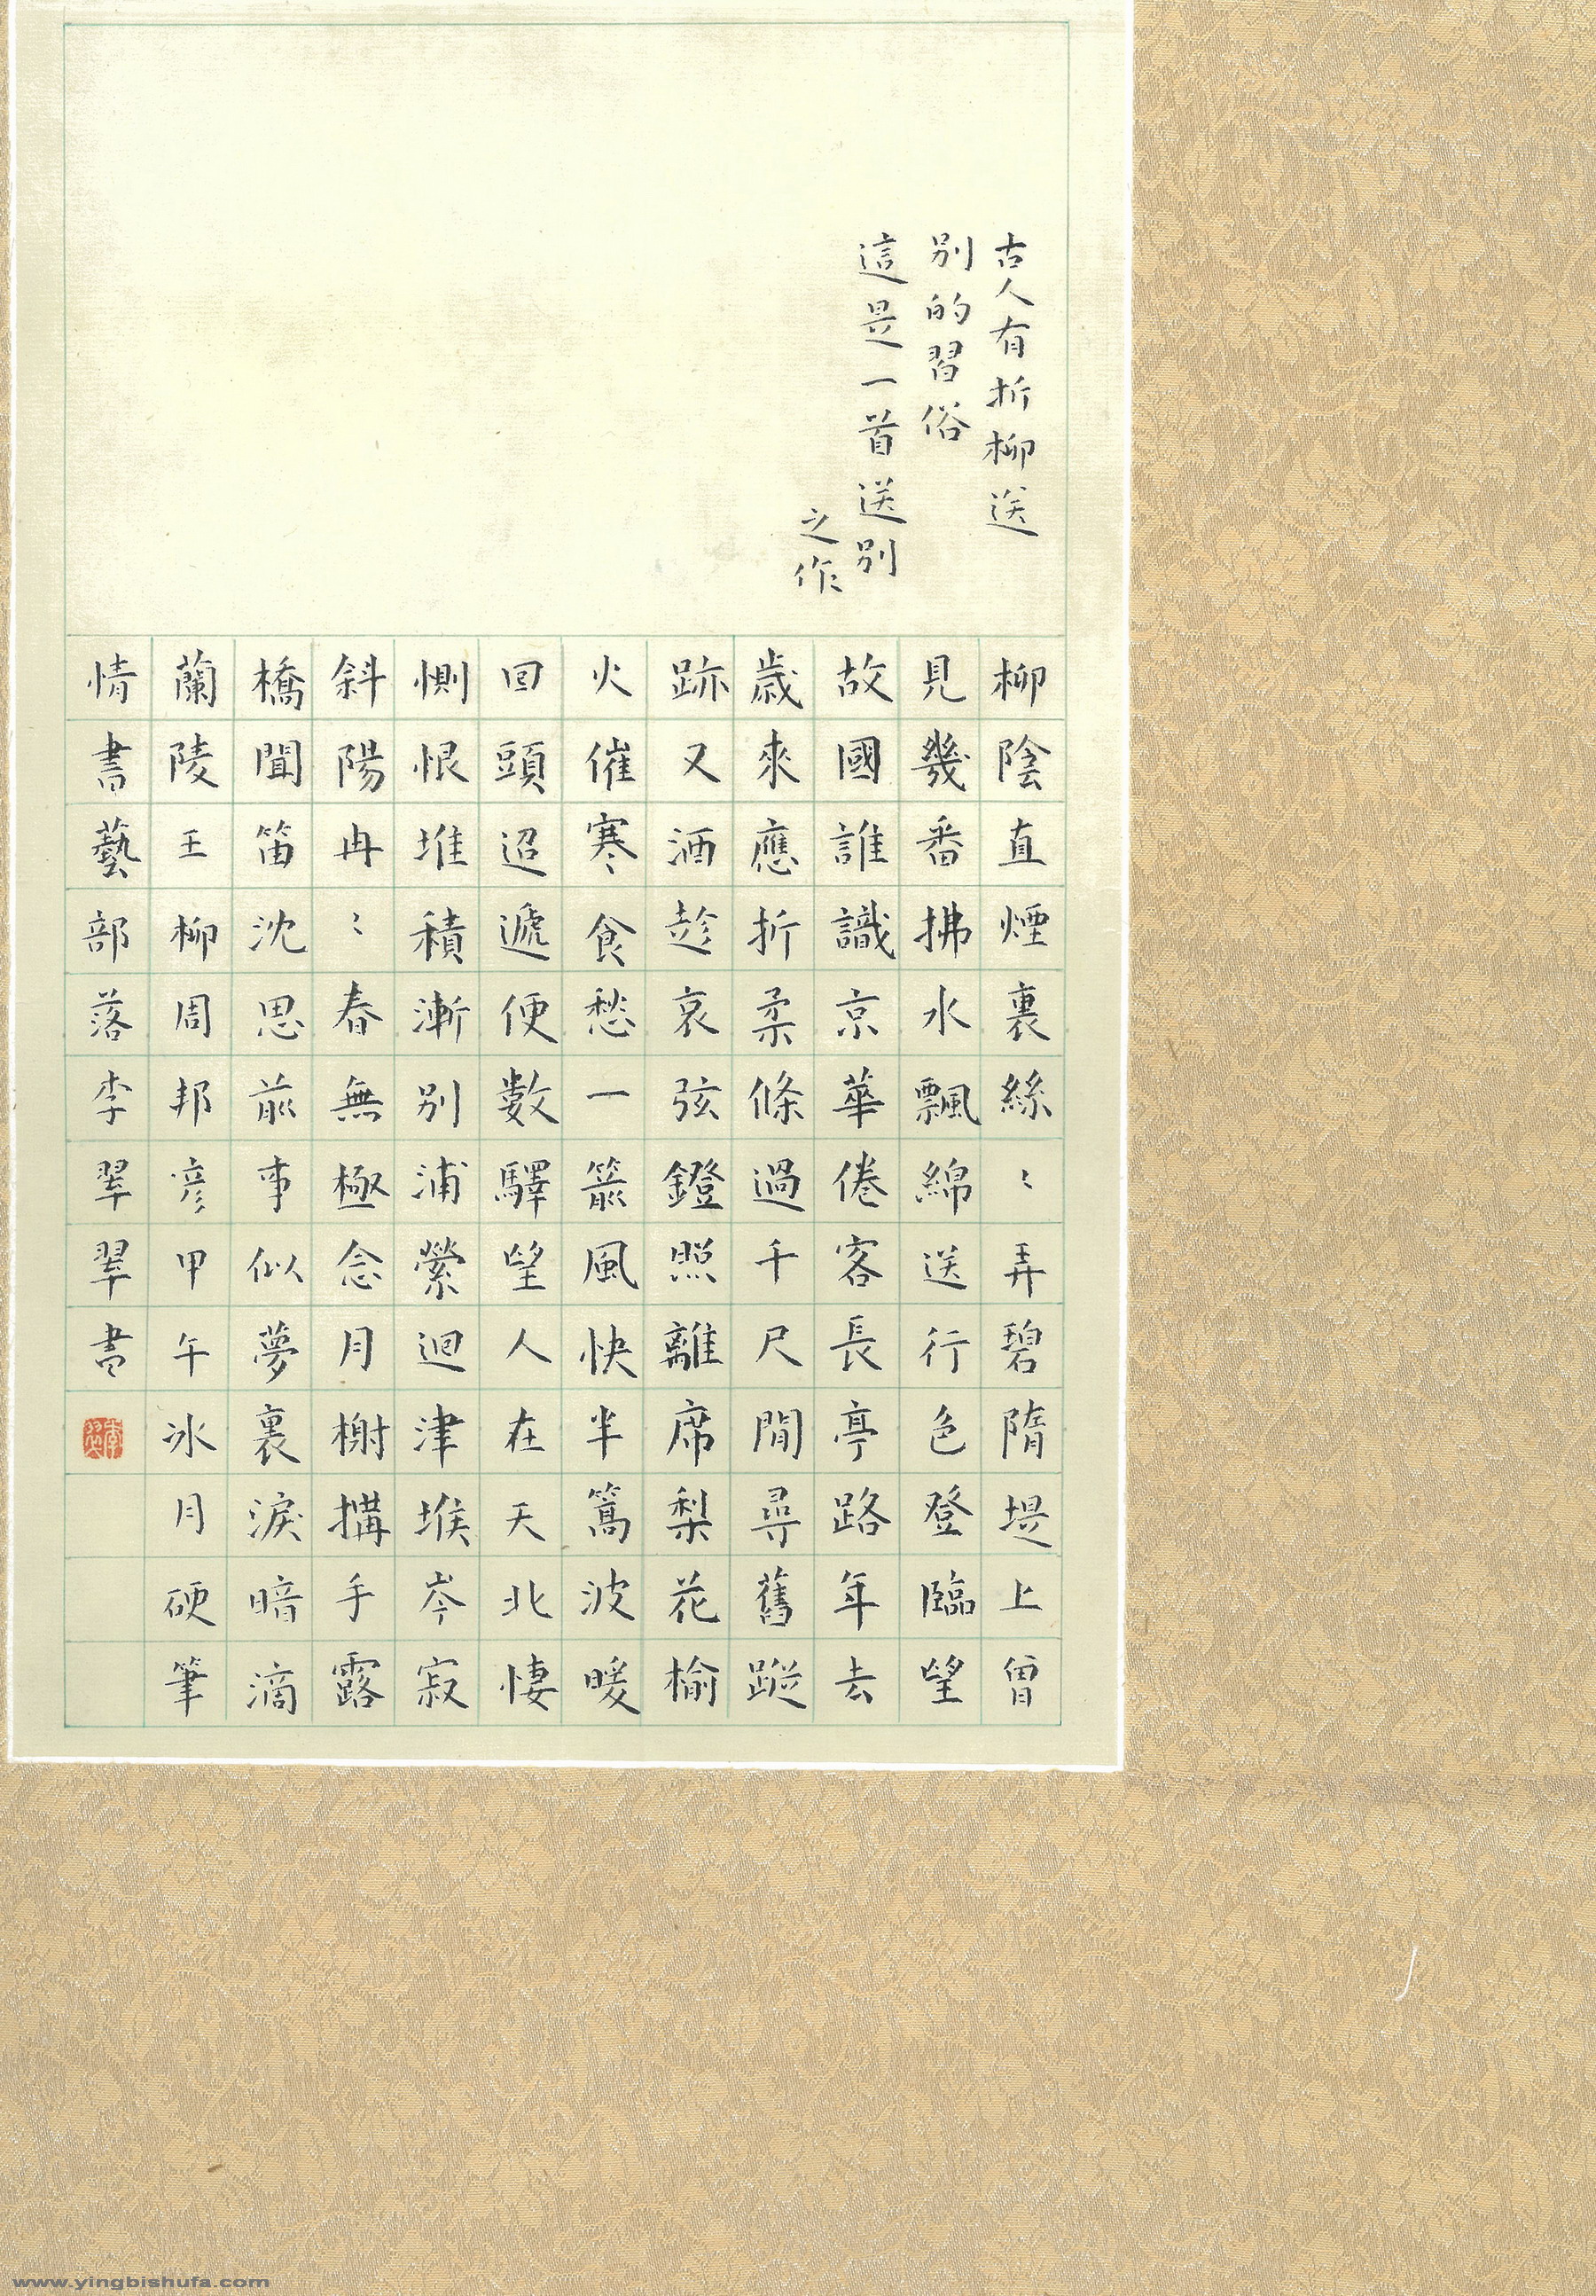 古人有折柳送
別的習俗
這是一首送別
之作
柳陰直煙裏絲〻弄碧隋堤上曾
見幾番拂水飄綿送行色登臨望
故國誰識京華倦客長亭路年去
歲來應折柔條過千尺閒尋舊蹤
跡又酒趁哀弦鐙照離席梨花榆
火催寒食愁一箭風快半篙波暖
回頭迢遞便數驛望人在天北悽
惻恨堆積漸別浦縈迴津堠岑寂
斜陽冉〻春無極念月榭攜手露
橋聞笛沈思前事似夢裏淚暗滴
蘭陵王柳周邦彥甲午冰月硬筆
情書藝部落李翠翠書
www.yingbishufa.com